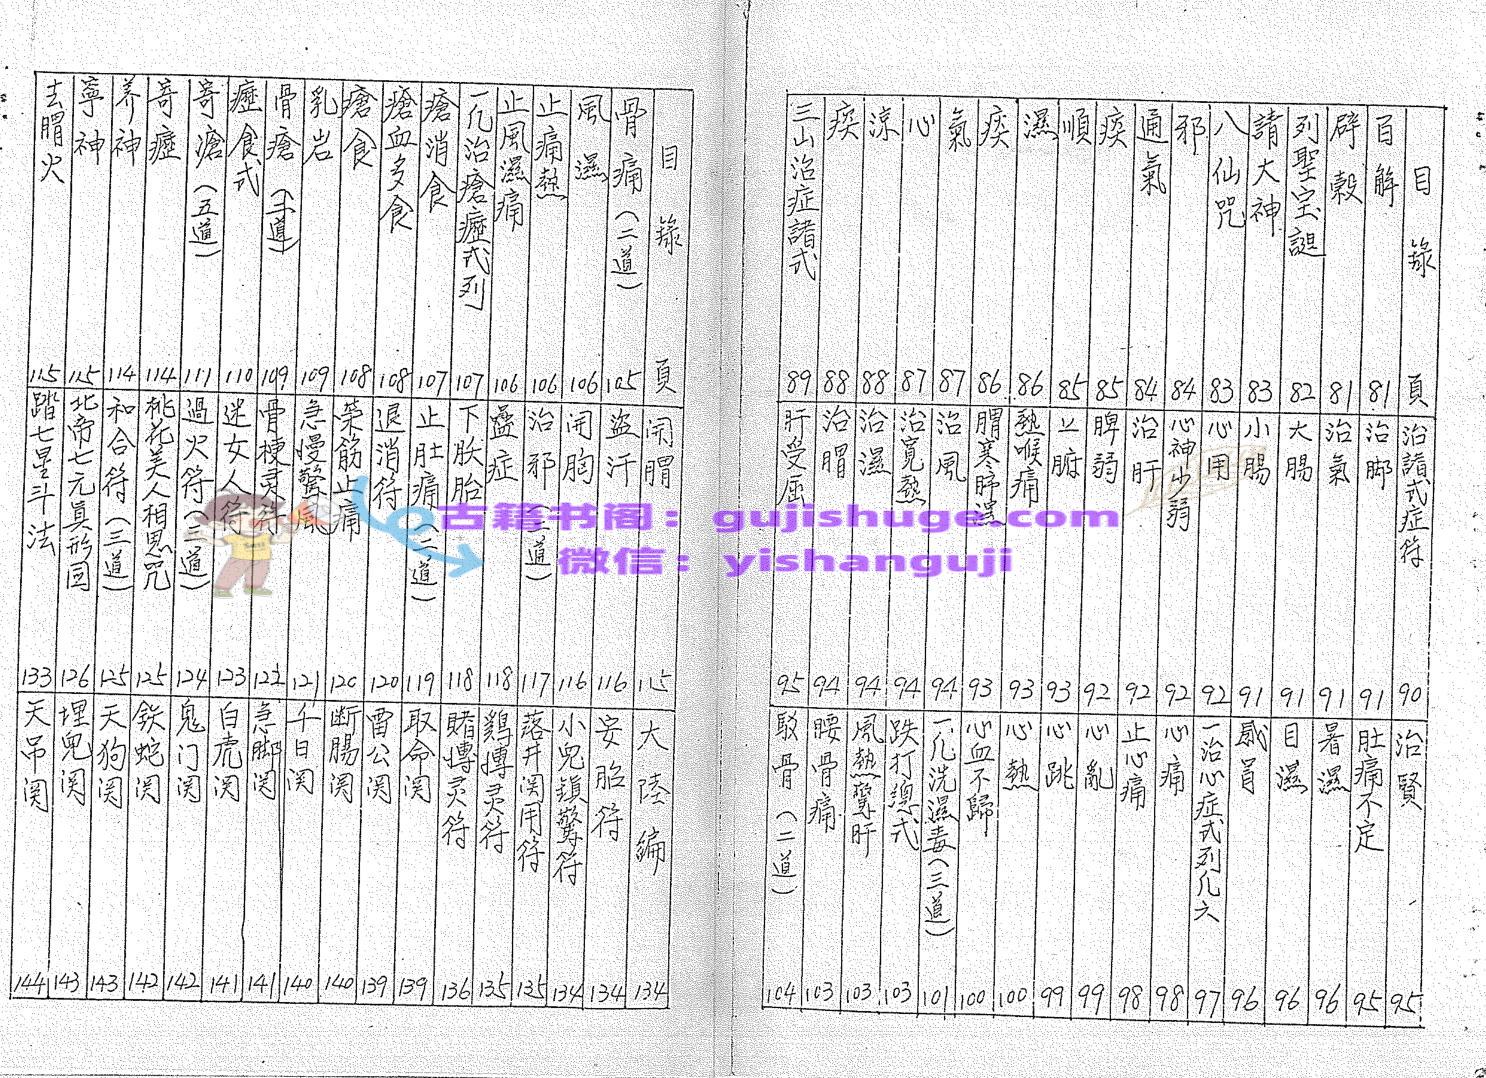 目錄 頁
百解 81
辟穀 81
列聖宝誕 82
請大神 83
八仙咒 83
邪 84
通氣 84
痰 85
順 85
濕 86
痰 86
氣 87
心 87
涼 88
痰 88
三山治症諸式 89
治諸式症符 90
治脚 91
治氣 91
大腸 91
小腸 91
心用 92
心神少弱 92
治肝 92
脾弱 92
腑 93
熱喉痛 93
胃寒 93
治風 94
治寬熱 94
治濕 94
治胃 94
肝受屈 95
治賢 95
肚痛不定 95
暑濕 96
目濕 96
感冒 96
一治心症式列几六 97
心痛 98
止心痛 98
心亂 99
心跳 99
心熱 100
心血不歸 100
一凡洗濕毒(三道) 101
跌打總式 103
風熱聚肝 103
腰骨痛 103
駁骨(二道) 104
目錄 頁
骨痛(二道) 105
風濕 106
止痛熱 106
止風濕痛 106
一凡治瘡癦式列 107
瘡消食 107
瘡血多食 108
瘡食 108
乳岩 109
骨瘡(二道) 109
癦食式 110
寄滄(五道) 111
寄癦 114
养神 114
寧神 115
去胃火 115
開胃 115
盜汗 116
開胸 116
治邪(三道) 117
蠱症 118
下妖胎 118
止肚痛(二道) 119
退消符 120
榮筋止痛 120
急慢驚風 121
骨梗灵符 122
迷女人符 123
過火符(三道) 124
桃花美人相思咒 125
和合符(三道) 125
北帝七元真形图 126
踏七星斗法 133
大陸編 134
安胎符 134
小兒鎮驚符 134
落井関用符 135
鷄摶灵符 135
賭摶灵符 136
取命関 139
雷公関 139
断腸関 140
千日関 140
急脚関 141
白虎関 141
鬼门関 142
鉄蛇関 142
天狗関 143
埋兒関 143
天吊関 144
古籍书阁：gujishuge.com
微信：yishanguji